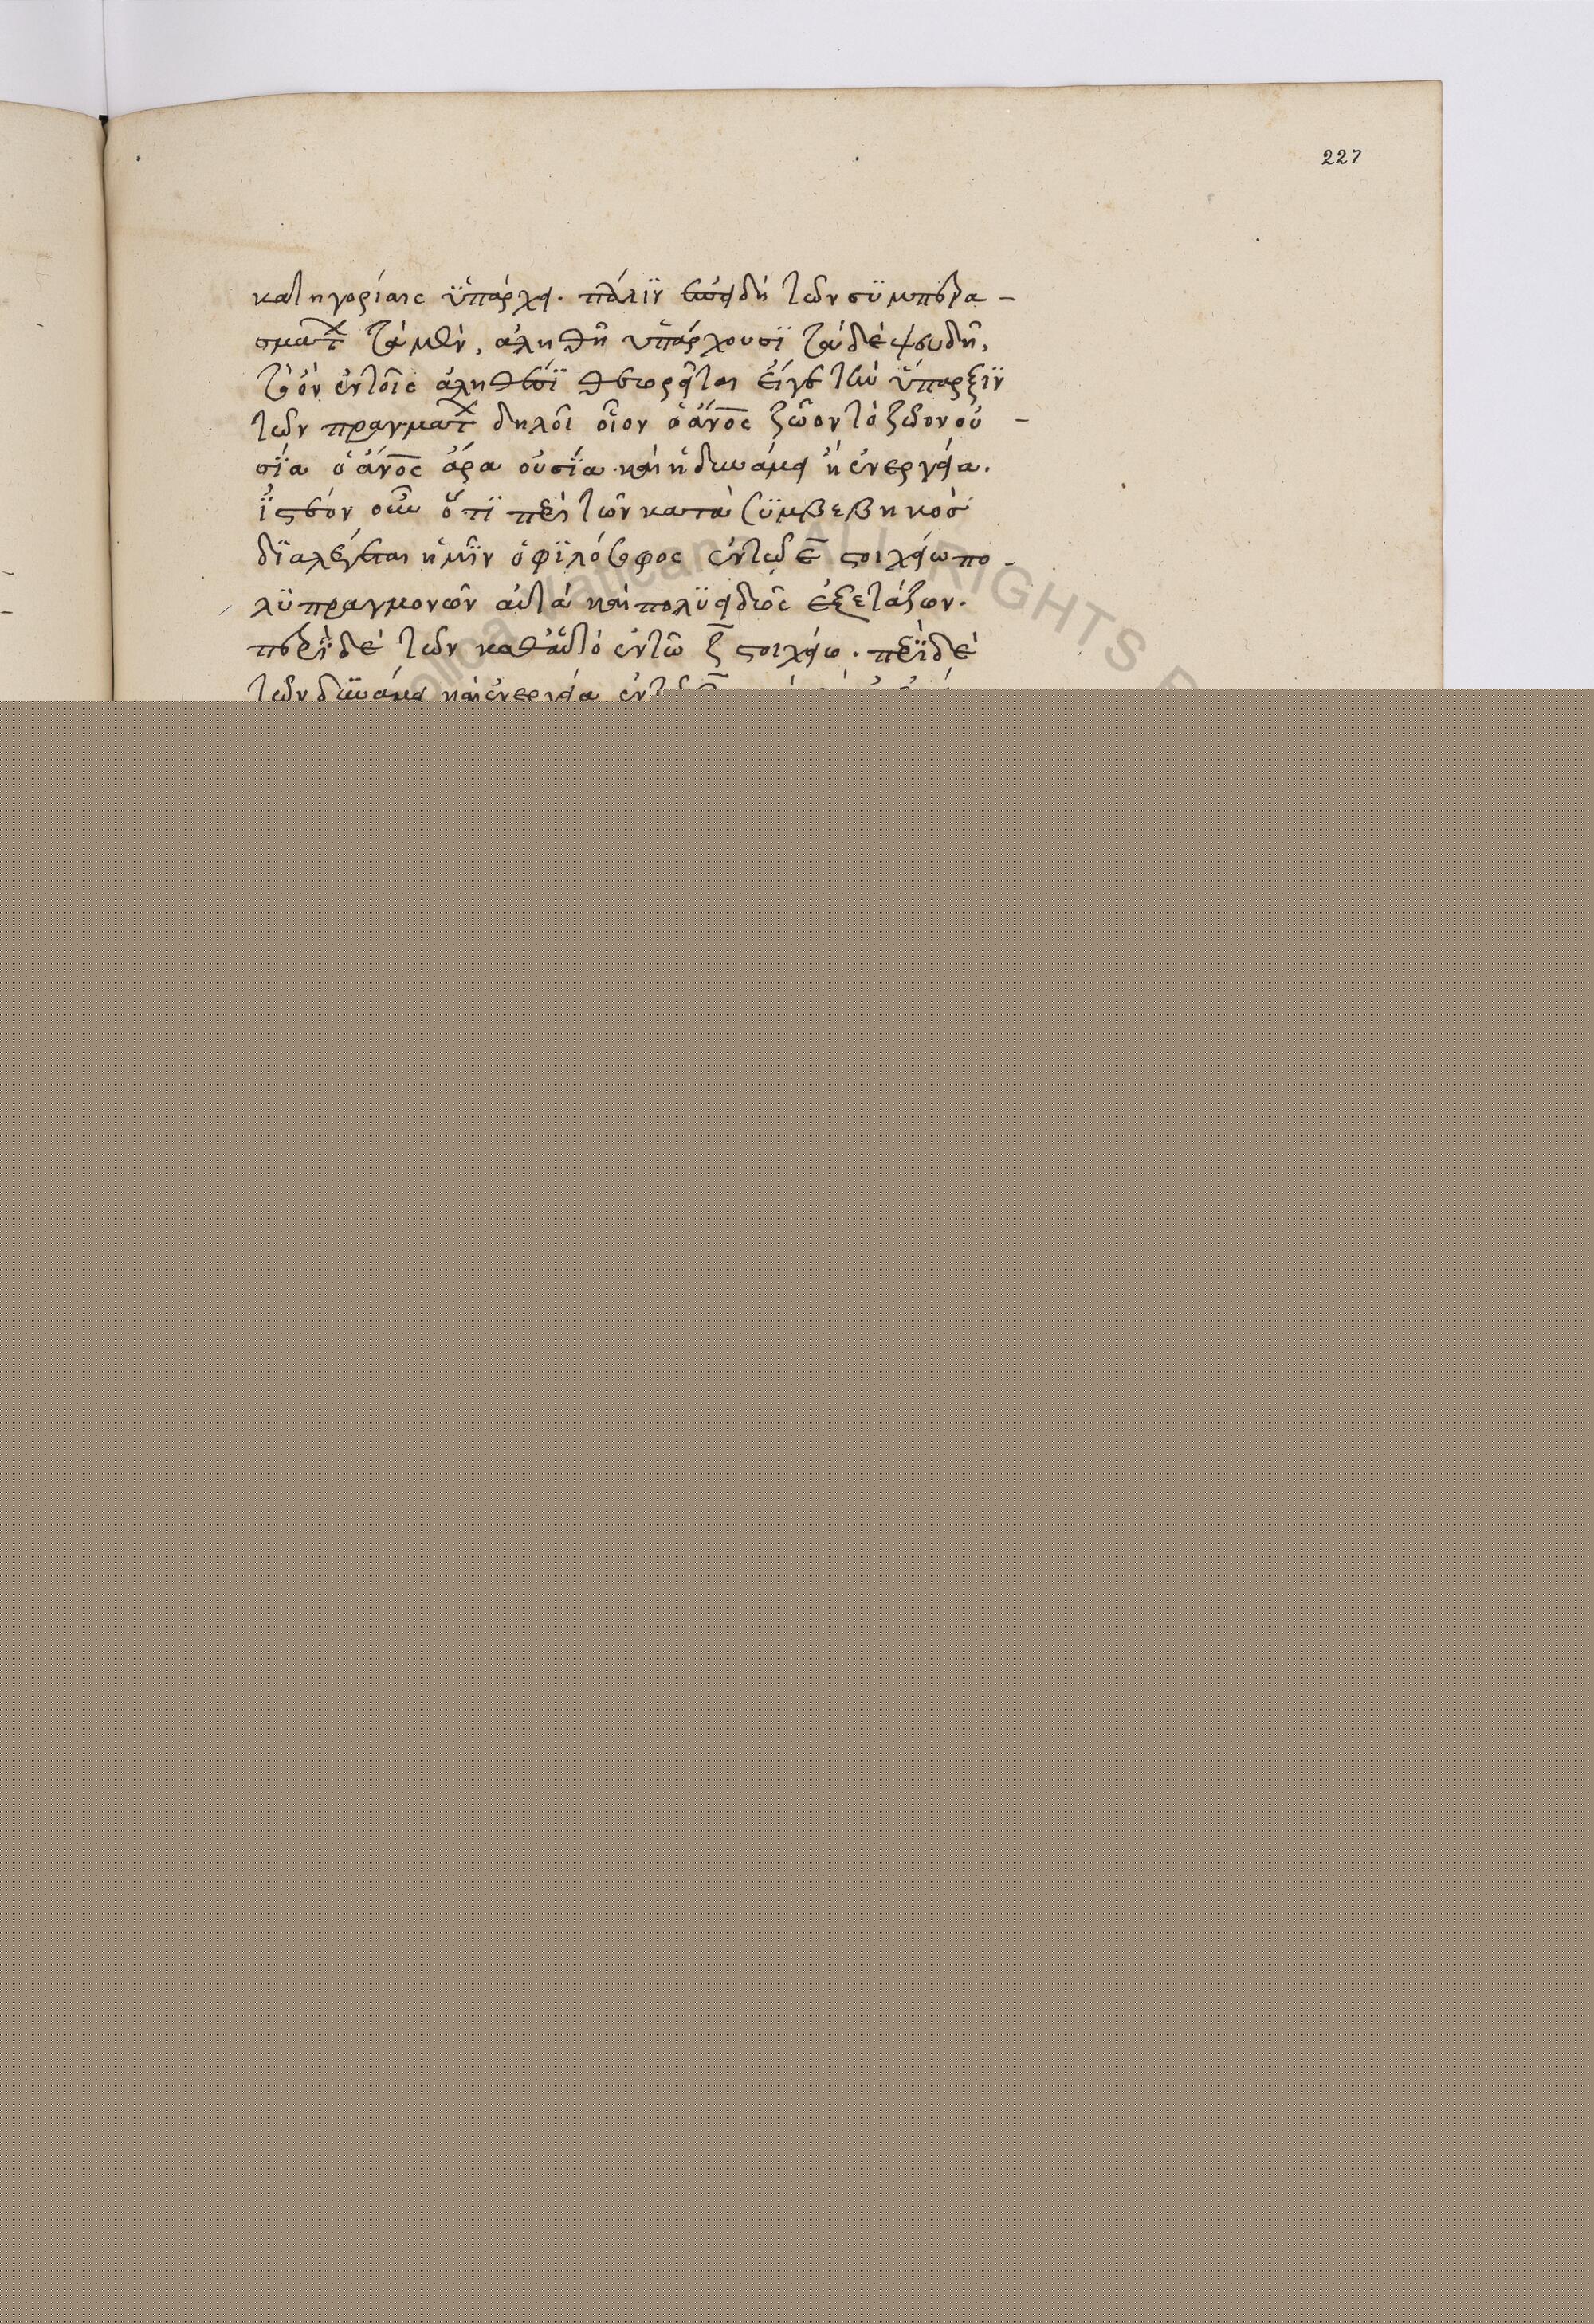 227
κατηγορίαις ὑπάρχει. πάλιν ἐπειδὴ τῶν συμπερα-
σμάτ τὰ μὲν, ἀληθῆ ὑπάρχουσι τὰ δὲ ψευδῆ,
τὸ ὂν ἐν τοῖς ἀληθέσι θεωρεῖται εἴγε τὴν ὕπαρξιν
τῶν πραγμάτ δηλοῖ οἷον ὁ ἄνος ζῶον τὸ ζῶον οὐ-
σία ὁ ἄνος ἄρα οὐσία καὶ ἡ δυνάμει ἡ ἐνεργεία.
ἰστέον οὖν ὅτι περὶ τῶν κατὰ συμβεβηκὸσ
διαλέγεται ἡμῖν ὁ φιλόσοφος ἐν τῶ ε στοιχείω πο-
λυπραγμονῶν αὐτὰ καὶ πολυειδῶς ἐξετάζων.
περὶ δὲ τῶν καθ' αὑτὸ ἐν τῶ ζ στοιχείω. περὶ δὲ
τῶν δυνάμει καὶ ἐνεργεία
ALL RIGHTS